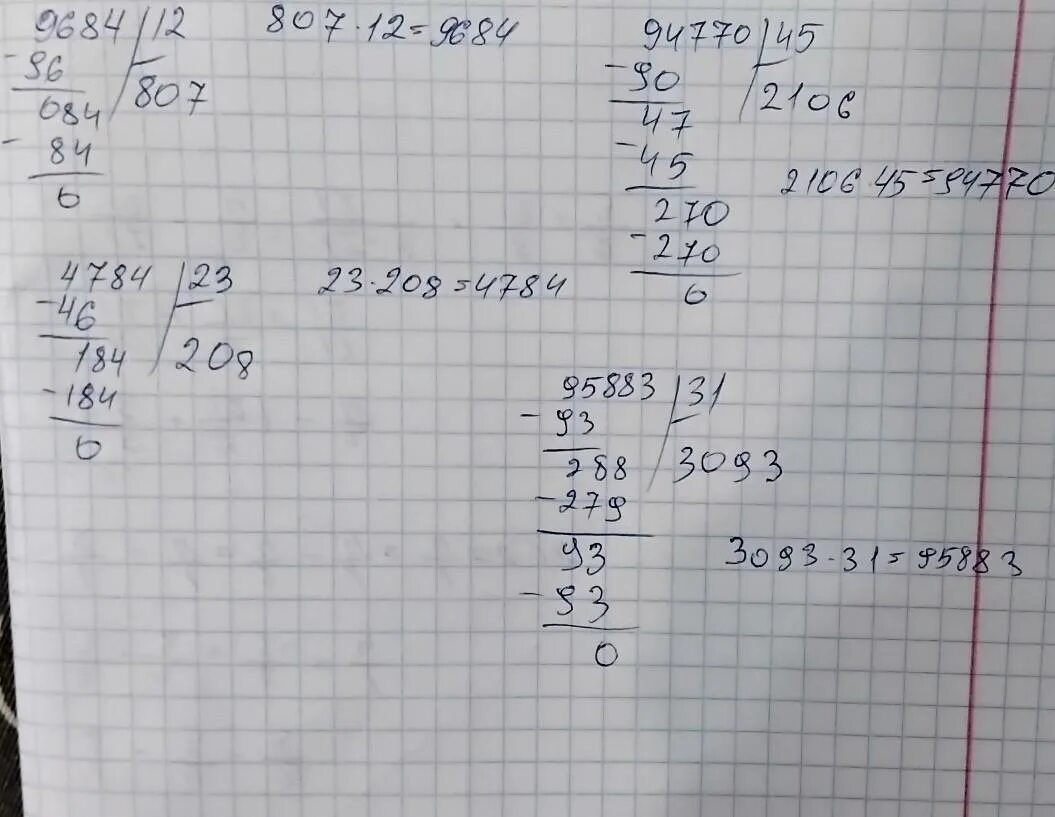 9684 | 12
- 96
807
084
- 84
0
807 · 12 = 9684
94770 | 45
- 90
2106
47
- 45
270
- 270
0
2106 · 45 = 94770
4784 | 23
- 46
208
184
- 184
0
23 · 208 = 4784
95883 | 31
- 93
3093
288
- 279
93
- 93
0
3093 · 31 = 95883